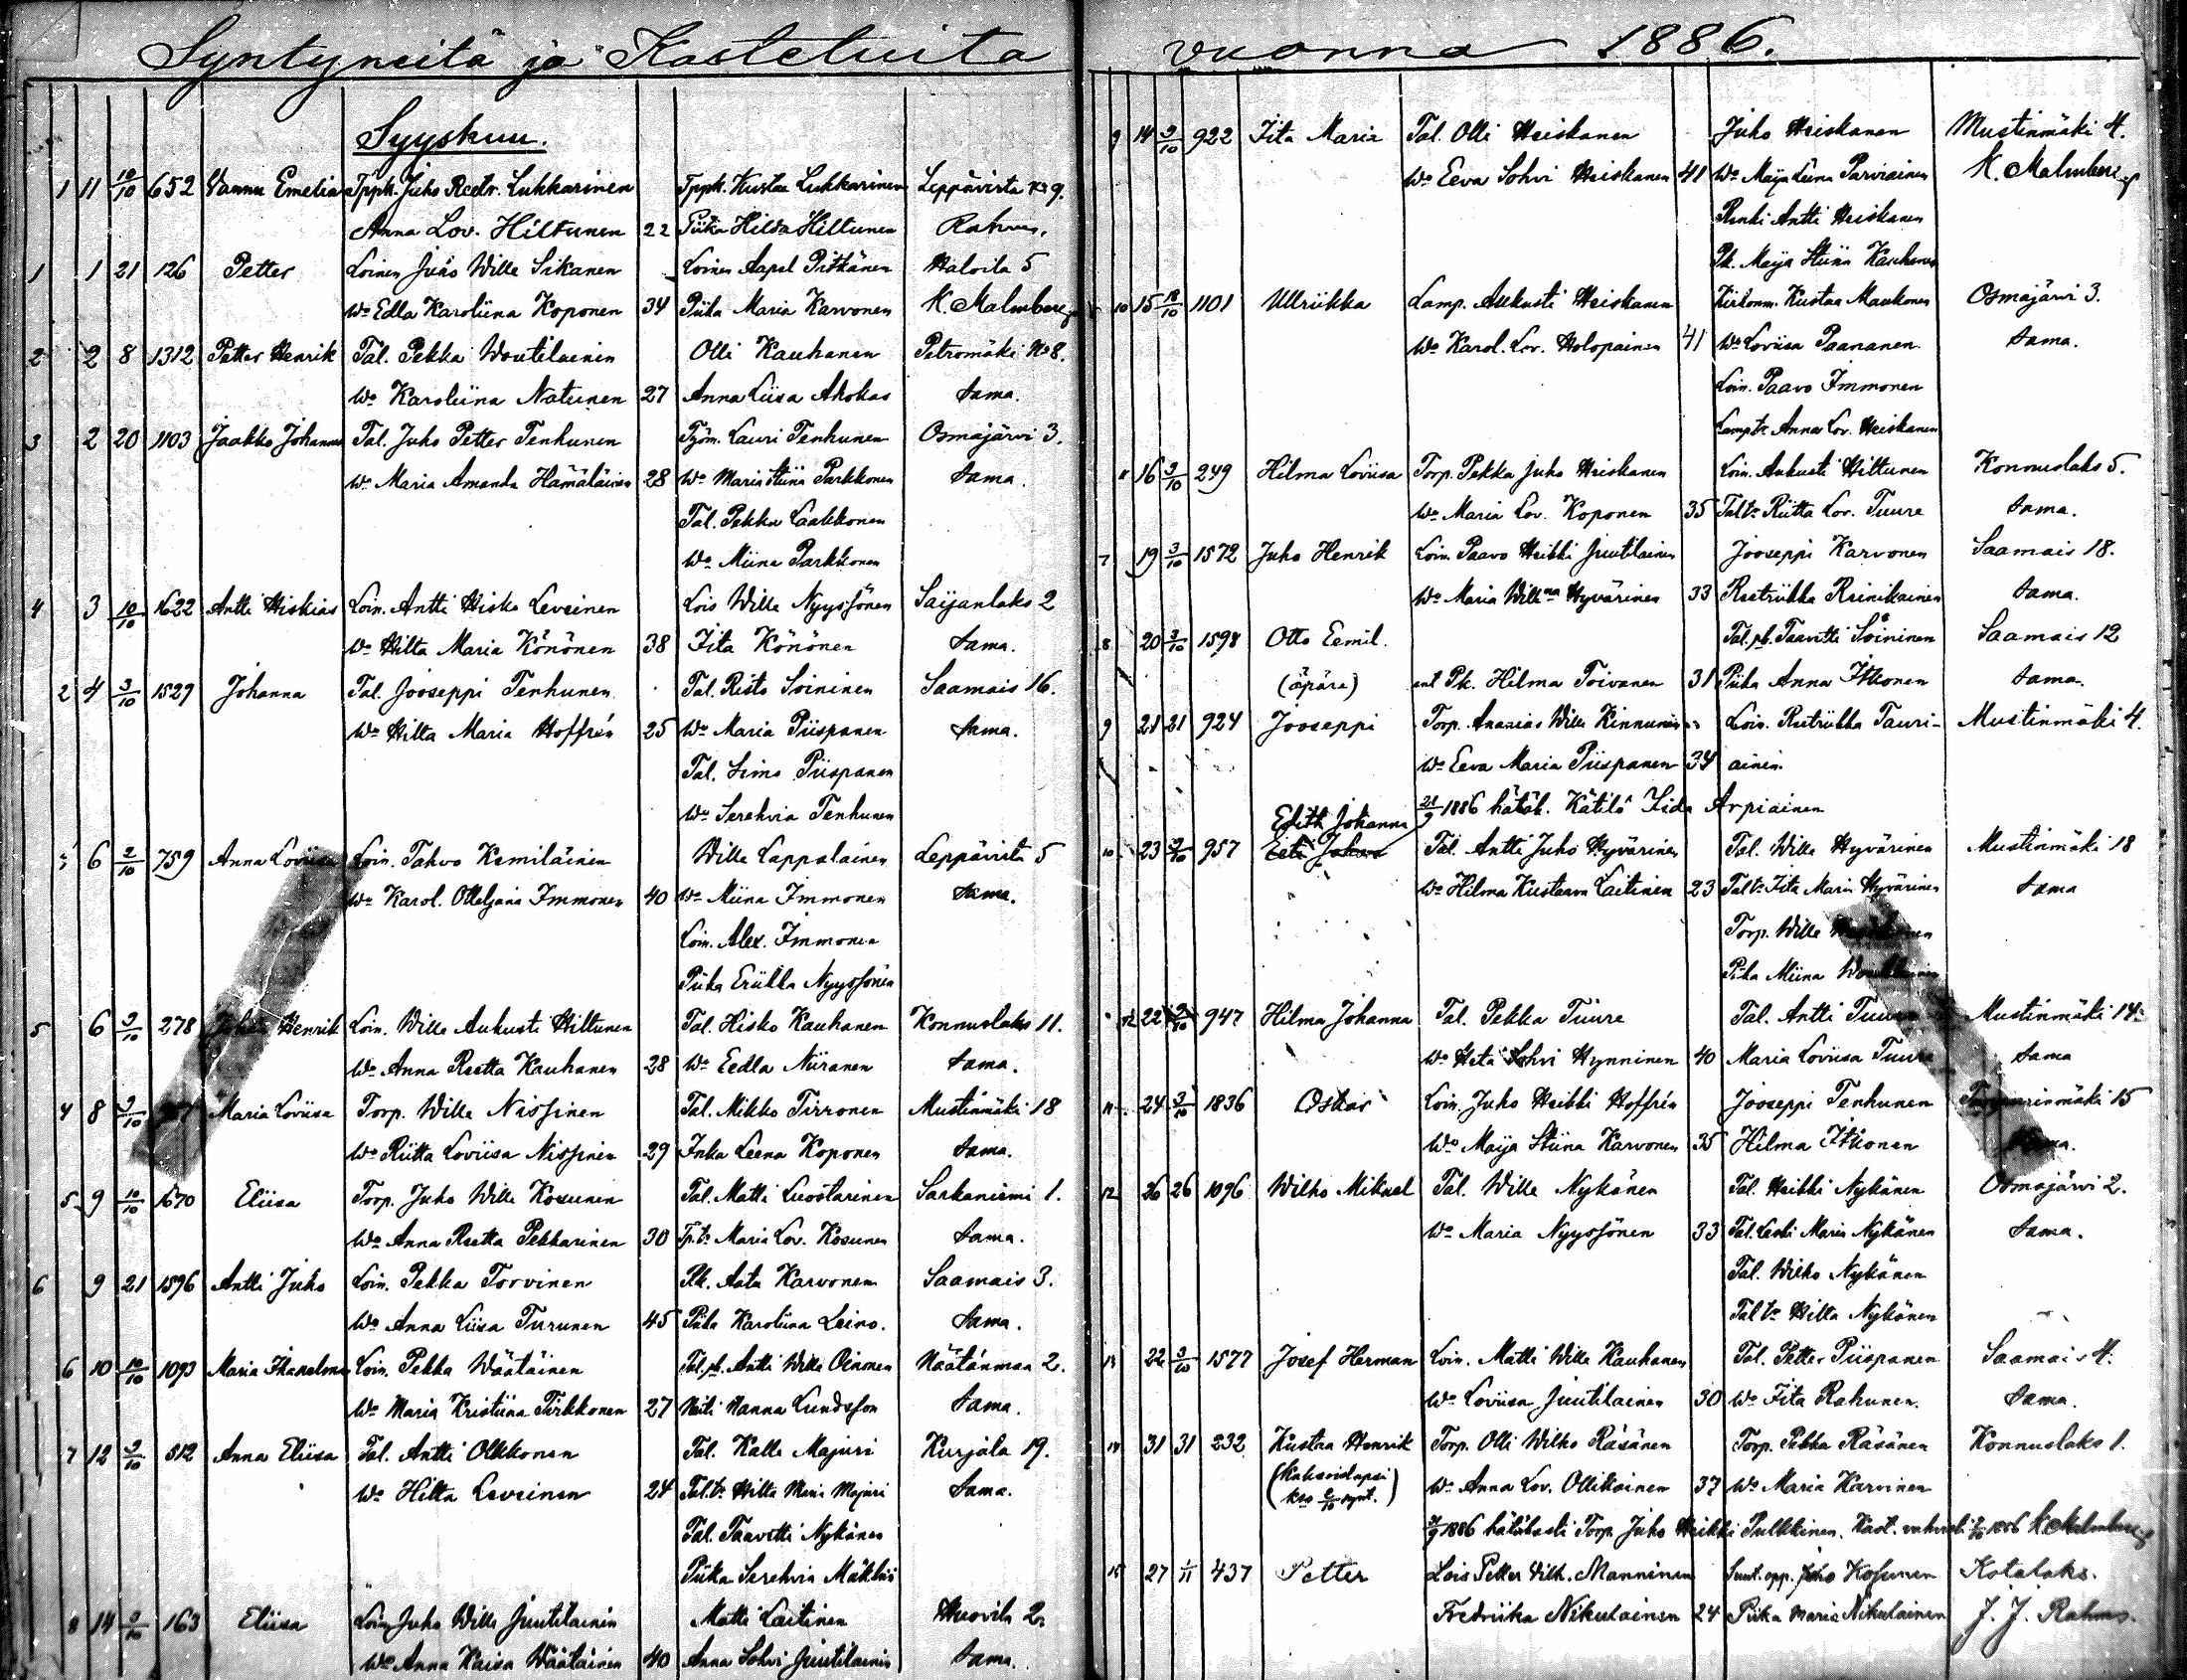 Syntyneitä ja Kastetuita vuonna 1886.
Syyskuu.
1 11 10/10 652 Vannu Emelia Tppk. Juho Reetr. Lukkarinen Tppk. Kustaa Lukkarinen Leppävirta No 9.
Anna Lov. Hiltunen 22 Piika Hilda Hiltunen Rahms.
1 1 21 126 Petter Loinen Juho Wille Sikanen Loinen Aapel Pitkänen Haloila 5
Wo Edla Karoliina Koponen 34 Piika Maria Karvonen K. Malmberg
2 2 8 1312 Petter Henrik Tal. Pekka Woutilainen Olli Kauhanen Petromäki No 8.
Wo Karoliina Natunen 27 Anna Liisa Ahokas Sama.
3 2 20 1103 Jaakko Johannes Tal. Juho Petter Tenhunen Työm. Lauri Tenhunen Osmajärvi 3.
Wo Maria Amanda Hämäläinen 28 Wo Maria Stiina Parkkonen Sama.
Tal. Pekka Laakkonen
Wo Miina Parkkonen
4 3 10/10 1622 Antti Hiskias Loin. Antti Hisko Leveinen Lois Wille Nyyssönen Saijanlaks 2
Wo Hilta Maria Könönen 38 Fita Könönen Sama.
2 4 3/10 1529 Johanna Tal. Jooseppi Tenhunen Tal. Risto Soininen Saamais 16.
Wo Hilta Maria Hoffrén 25 Wo Maria Piispanen Sama.
Tal. Simo Piispanen
Wo Serehvia Tenhunen
3 6 2/10 759 Anna Loviisa Loin. Tahvo Kemiläinen Wille Lappalainen Leppävirta 5
Wo Karol. Otteljana Immonen 40 Wo Miina Immonen Sama.
Loin. Alex. Immonen
Piika Eriikka Nyyssönen
5 6 3/10 278 Henrik Loin. Wille Aukusti Hiltunen Tal. Hisko Kauhanen Konnuslaks 11.
Wo Anna Reetta Kauhanen 28 Wo Eedla Niiranen Sama.
4 8 3/10 Maria Loviisa Torp. Wille Nissinen Tal. Mikko Tirronen Mustinmäki 18
Wo Riitta Loviisa Nissinen 29 Inka Leena Koponen Sama.
5 9 10/10 1670 Eliisa Torp. Juho Wille Kosunen Tal. Matti Luostarinen Sarkaniemi 1.
Wo Anna Reetta Pekkarinen 30 Tp.tr Maria Lov. Kosunen Sama.
6 9 21 1596 Antti Juho Loin. Pekka Torvinen Rk. Aatu Karvonen Saamais 3.
Wo Anna Liisa Turunen 45 Piika Karoliina Leino. Sama.
6 10 10/10 1093 Maria Loin. Pekka Wäätäinen Tal. pk. Antti Wille Oinonen Näätänmaa 2.
Wo Maria Kristiina Tirkkonen 27 Neiti Nanna Lundsson Sama.
7 12 3/10 512 Anna Eliisa Tal. Antti Olkkonen Tal. Kalle Majuri Kurjala 19.
Wo Hilta Leveinen 24 Tal.tr Hilta Maria Majuri Sama.
Tal. Taavetti Nykänen
Piika Serehvia
8 14 3/10 163 Eliisa Loin. Juho Wille Juutilainen Matti Laitinen Huovila 2.
Wo Anna Kaisa Wäätäinen 40 Anna Sohvi Juutilainen Sama.
9 14 3/10 922 Fita Maria Tal. Olli Heiskanen Juho Heiskanen Mustinmäki 4.
Wo Eeva Sohvi Heiskanen 41 Wo Maija Leena Parviainen K. Malmberg
Renki Antti Heiskanen
Pk. Maija Stiina Kauhanen
10 15 18/10 1101 Ulriikka Lamp. Aukusti Heiskanen Kirkonm. Kustaa Maukonen Osmajärvi 3.
Wo Karol. Lov. Holopainen 41 Wo Loviisa Paananen Sama.
Loin. Paavo Immonen
Lamptr Anna Lov. Heiskanen
11 16 3/10 249 Hilma Loviisa Torp. Pekka Juho Heiskanen Loin. Aukusti Hiltunen Konnuslaks 5.
Wo Maria Lov. Koponen 35 Taltr Riitta Lov. Tuure Sama.
7 19 3/10 1572 Juho Henrik Loin. Paavo Heikki Juutilainen Jooseppi Karvonen Saamais 18.
Wo Maria Willna Hyvärinen 33 Reetriikka Reinikainen Sama.
8 20 3/10 1598 Otto Eemil. Tal. pk. Taavetti Soininen Saamais 12
(äpärä) ent Pk. Hilma Toivanen 31 Piika Anna Itkonen Sama.
9 21 21 924 Jooseppi Torp. Ananias Wille Kinnunen Lois. Reetriikka Tauri- Mustinmäki 4.
Wo Eeva Maria Piispanen 34 ainen
Edith Johanna 21/9 1886 hätäk. Kätilö Fida Arpiainen
10 23 3/10 957 Eeti Johan Tal. Antti Juho Hyvärinen Tal. Wille Hyvärinen Mustinmäki 18
Wo Hilma Kustaava Laitinen 23 Taltr Fita Maria Hyvärinen Sama
Torp. Wille
Piika Miina
12 22 3/10 947 Hilma Johanna Tal. Pekka Tuure Tal. Antti Tuure Mustinmäki 14.
Wo Heta Sohvi Hynninen 40 Maria Loviisa Tuure Sama
11 24 3/10 1836 Oskar Loin. Juho Heikki Hoffrén Jooseppi Tenhunen 15
Wo Maija Stiina Karvonen 35 Hilma Itkonen Sama.
12 26 26 1096 Wilho Mikael Tal. Wille Nykänen Tal. Heikki Nykänen Osmajärvi 2.
Wo Maria Nyyssönen 33 Tal. Leski Maria Nykänen Sama.
Tal. Wilho Nykänen
Taltr Hilta Nykänen
13 22 3/10 1577 Josef Herman Loin. Matti Wille Kauhanen Tal. Petter Piispanen Saamais 4.
Wo Loviisa Juutilainen 30 Wo Fita Rahunen Sama.
14 31 31 232 Kustaa Henrik Torp. Olli Wilho Räsänen Torp. Pekka Räsänen Konnuslaks 1.
(kaksoislapsi Wo Anna Lov. Ollikainen 37 Wo Maria Karvinen
kts 2/10 synt.)
1886 hätäkasti Torp Juho Heikki Pulkkinen. Kast. vahvisti 1886 K Malmberg
15 27 1/11 437 Petter Lois Petter Vilh. Manninen Suut. opp. Juho Kosunen Kotalaks.
Fredriika Nikulainen 24 Piika Maria Nikulainen J. J. Rahms.